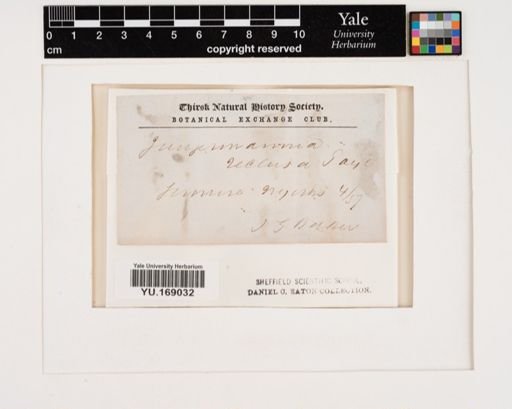 0 1 2 3 4 5 6 7 8 9 10
cm
copyright reserved
Yale
University
Herbarium
Thirsk Natural History Society.
BOTANICAL EXCHANGE CLUB.
Jungermannia
J G Baker
Yale University Herbarium
YU.169032
SHEFFIELD SCIENTIFIC SCHOOL.
DANIEL C. EATON COLLECTION.